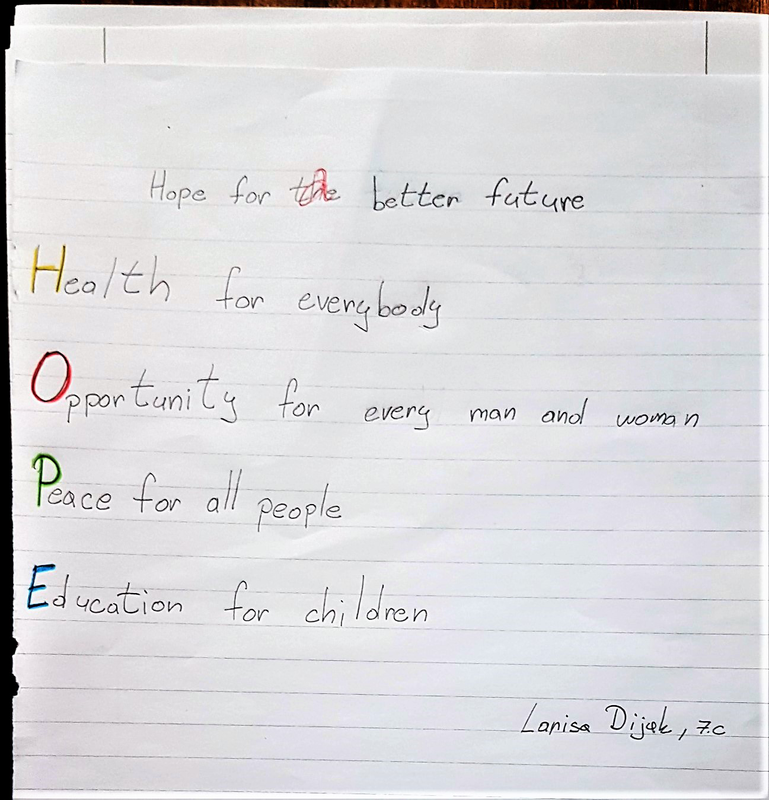 Hope for the better future
Health for everybody
Opportunity for every man and woman
Peace for all people
Education for children
Lanisa Dijak, 7.c